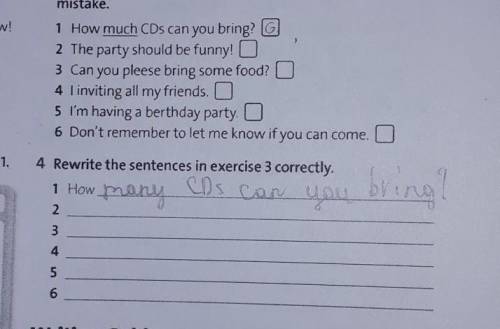 mistake.
w!
1 How much CDs can you bring? G
2 The party should be funny!
3 Can you pleese bring some food?
4 I inviting all my friends.
5 I'm having a berthday party.
6 Don't remember to let me know if you can come.
1.
4 Rewrite the sentences in exercise 3 correctly.
1 How many CDs can you bring?
2
3
4
5
6